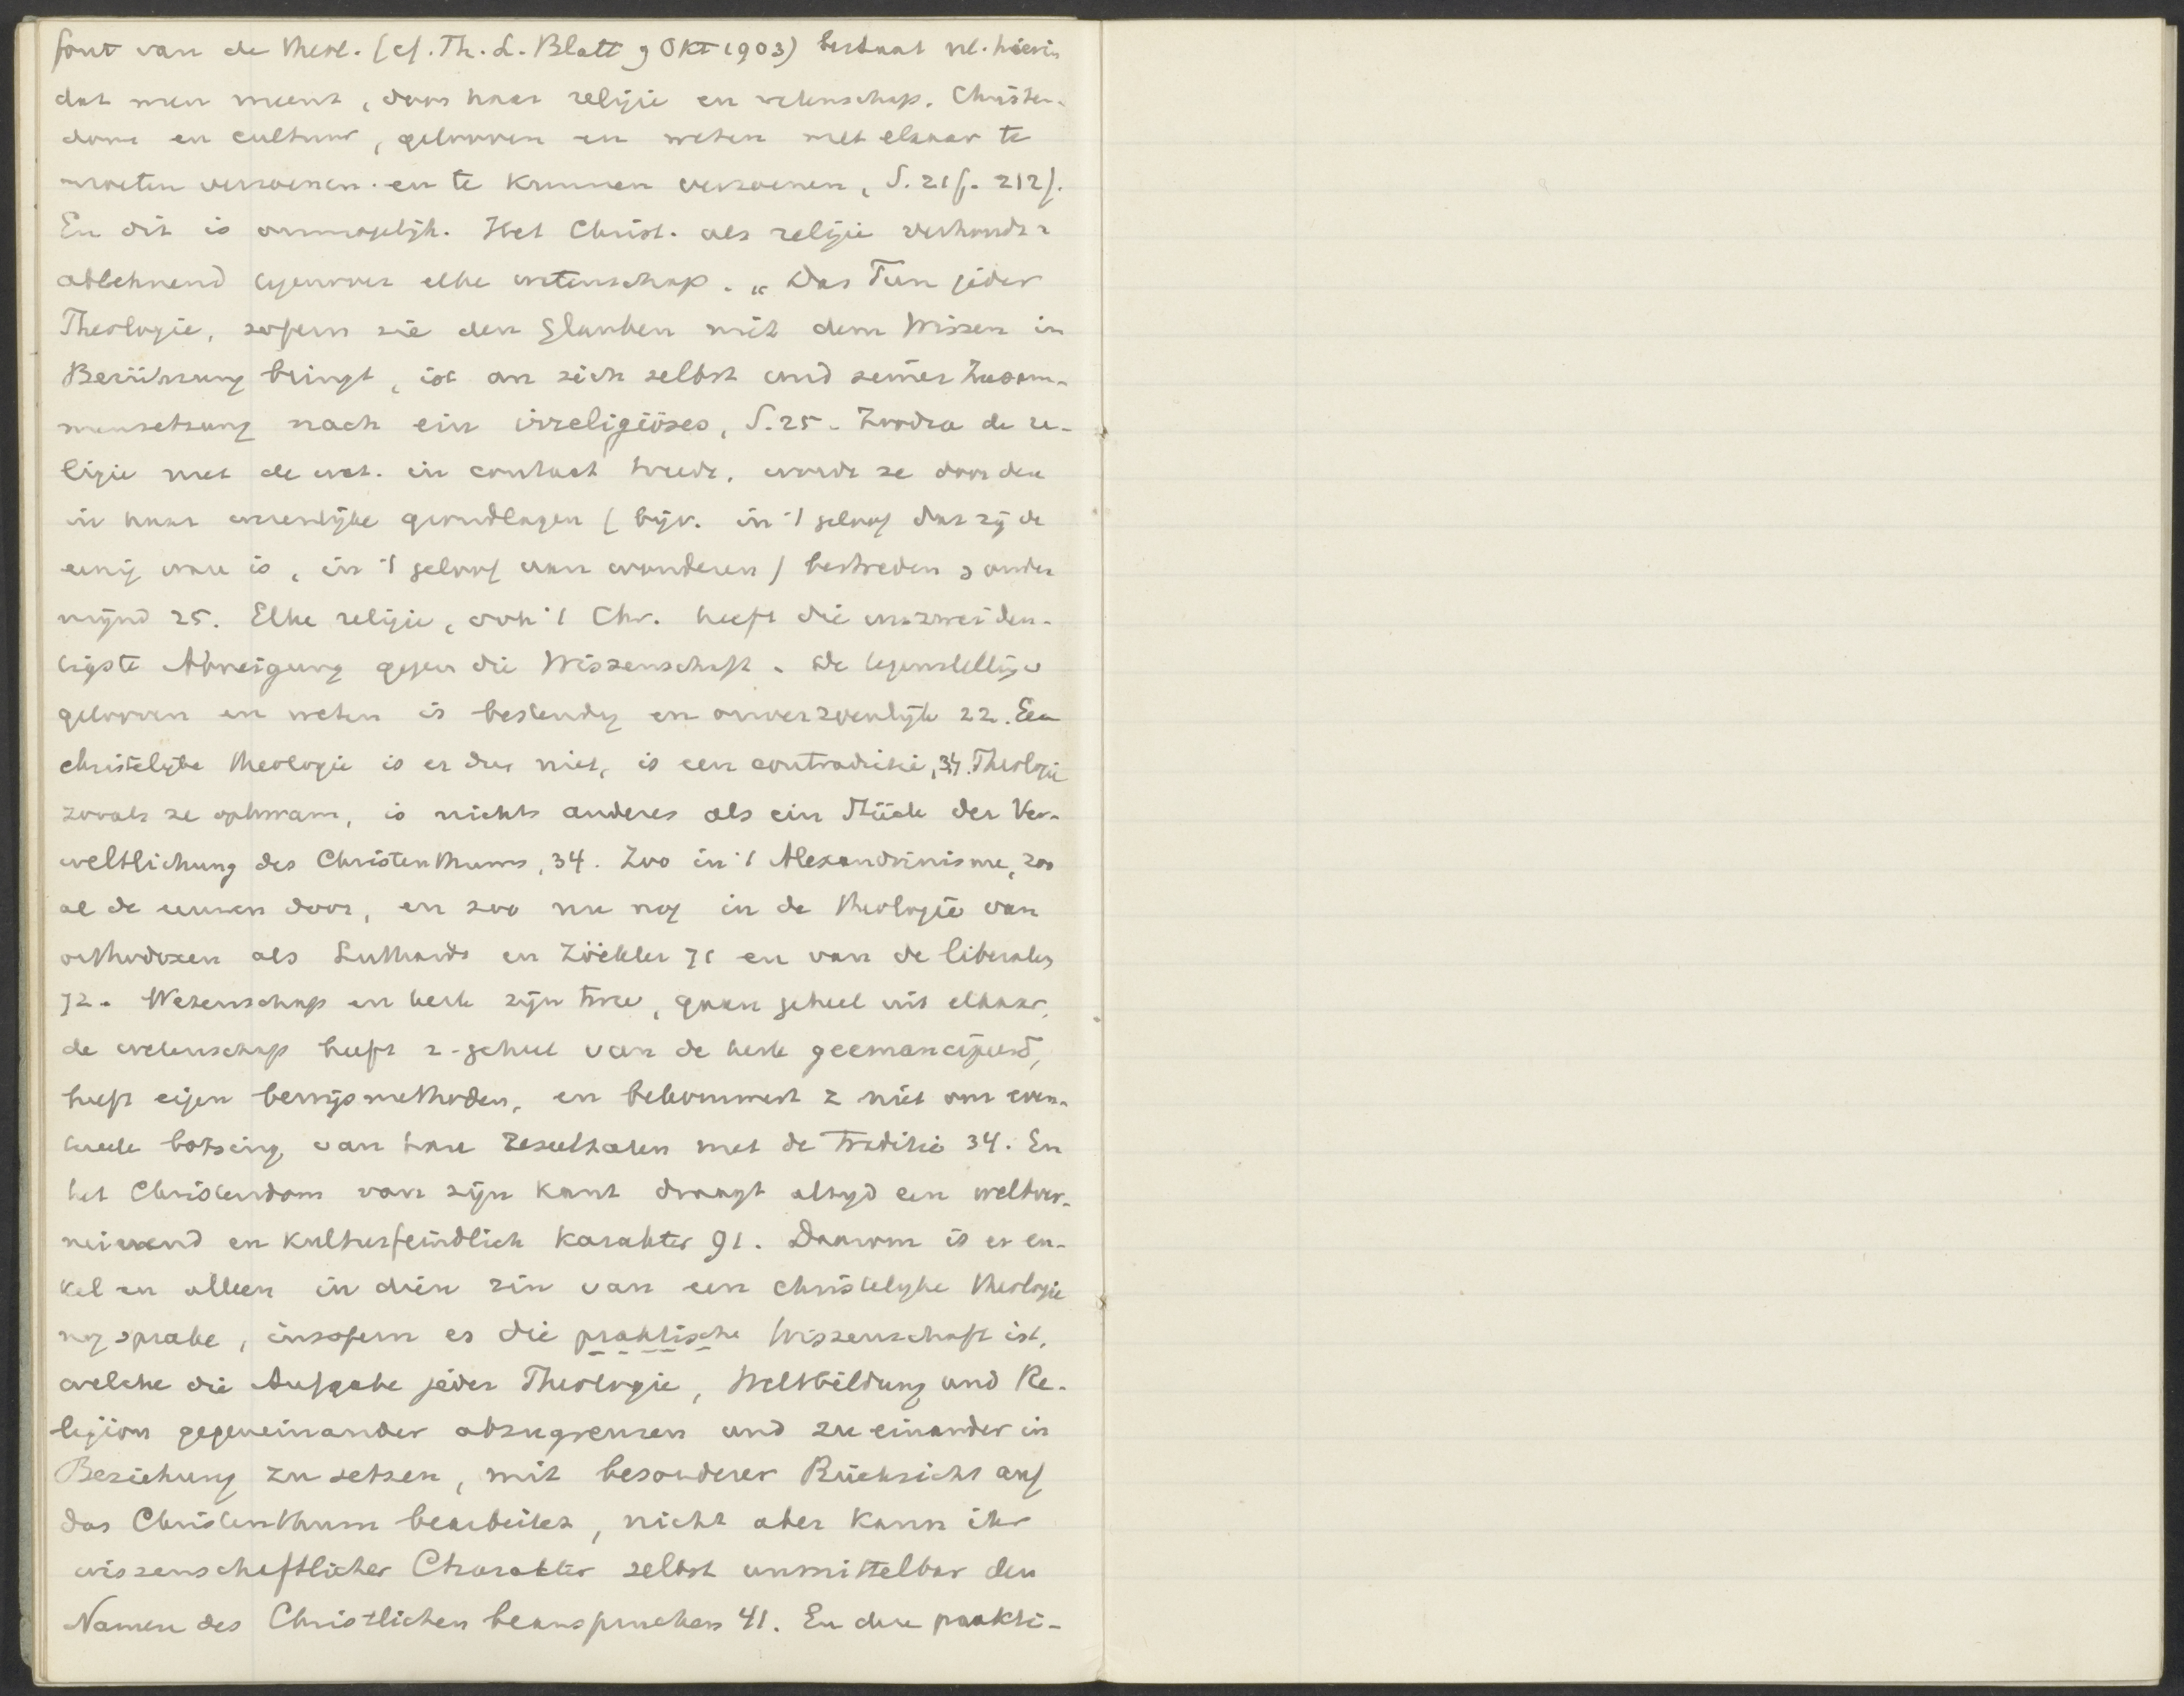 fout van de theol. (cf. Th. L. Blatt 9 Okt 1903) bestaat nl. hierin
dat men meent, door haar religie en wetenschap, Christen-
dom en cultuur, gelooven en weten met elkaar te
moeten verzoenen en te kunnen verzoenen, S. 21f. 212f.
En dit is onmogelijk. Het Christ. als religie verhoudt z
ablehnend tegenover elke wetenschap. „Das Tun jeder
Theologie, sofern sie den Glauben mit dem Wissen in
Berührung bringt, ist an sich selbst und seiner Zusam-
mensetzung nach ein irreligiöses, S. 25. Zoodra de re-
ligie met de wet. in contact treedt, wordt ze door deze
in haar wezenlijke grondlagen (bijv. in 't geloof dat zij de
eenig ware is, in 't geloof aan wonderen) bestreden & onder
mijnd 25. Elke religie, ook 't Chr. heeft die unzweideu-
tigste Abneigung gegen die Wissenschaft. De tegenstelling v
gelooven en weten is bestendig en onverzoenlijk 22. Een
christelijke theologie is er dus niet, is een contradictie, 34. Theologie
zooals ze opkwam, is nichts anderes als ein Stück der Ver-
weltlichung des Christenthums, 34. Zoo in 't Alexandrinisme, zoo
al de eeuwen door, en zoo nu nog in de theologie van
orthodoxen als Luthardt en Zöckler 71 en van de liberalen
72. Wetenschap en kerk zijn twee, gaan geheel uit elkaar,
de wetenschap heeft z. geheel van de kerk geemancipeerd,
heeft eigen bewijsmethoden, en bekommert z niet om even-
tueele botsing van hare resultaten met de traditie 34. En
het Christendom van zijn kant draagt altijd een weltver-
neinend en kulturfeindlich karakter 91. Daarom is er en-
kel en alleen in dién zin van een christelijke theologie
nog sprake, insofern es die praktische Wissenschaft ist,
welche die Aufgabe jeder Theologie, Weltbildung und Re-
ligion gegeneinander abzugrenzen und zu einander in
Beziehung zu setzen, mit besonderer Rücksicht auf
das Christenthum bearbeitet, nicht aber kann ihr
wissenschaftlicher Charakter selbst unmittelbar den
Namen des Christlichen beanspruchen 41. En deze prakti-